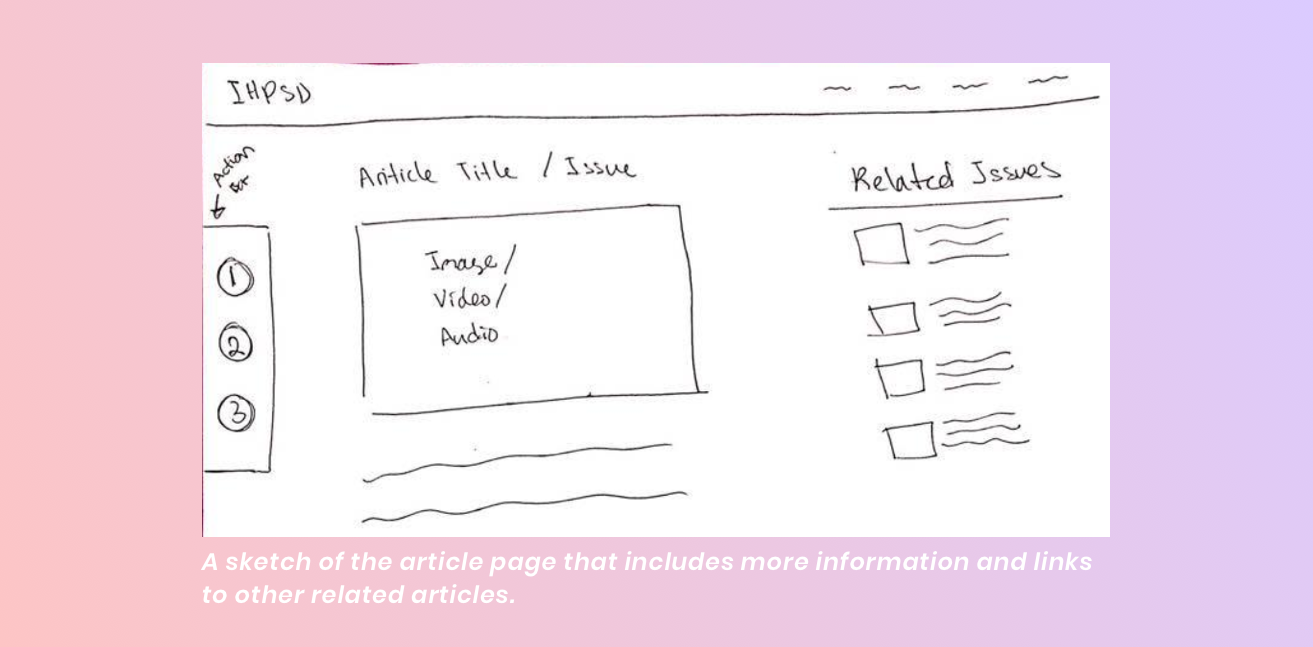 IHPSD
Action
Bar
Article Title / Issue
Related Issues
1
2
3
Image/
Video/
Audio
A sketch of the article page that includes more information and links
to other related articles.